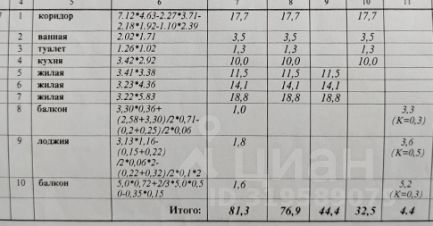 4 5 6 7 8 9 10 11
1 коридор 7.12*4.63-2.27*3.71- 17,7 17,7 17,7
2.18*1.92-1.10*2.39
2 ванная 2.02*1.71 3,5 3,5 3,5
3 туалет 1.26*1.02 1,3 1,3 1,3
4 кухня 3.42*2.92 10,0 10,0 10,0
5 жилая 3.41*3.38 11,5 11,5 11,5
6 жилая 3.23*4.36 14,1 14,1 14,1
7 жилая 3.22*5.83 18,8 18,8 18,8
8 балкон 3,30*0,36+ 1,0 3,3
(2,58+3,30)/2*0,71- (К=0,3)
(0,2+0,25)/2*0,06
9 лоджия 3,13*1,16- 1,8 3,6
(0,15+0,22) (К=0,5)
/2*0,06*2-
(0,22+0,32)/2*0,1*2
10 балкон 5,0*0,72+2/3*5.0*0,5 1,6 5,2
0-0,35*0,15 (К=0,3)
Итого: 81,3 76,9 44,4 32,5 4.4
циан